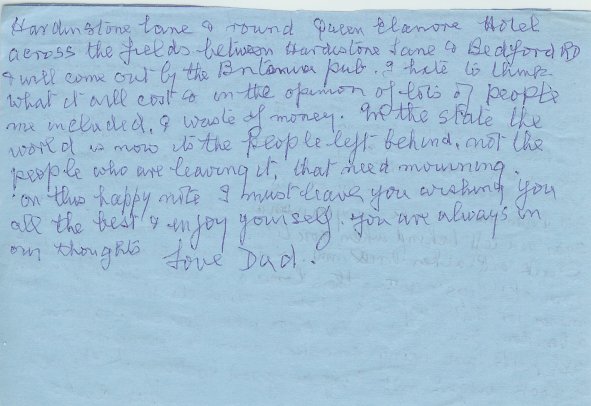 Hardinstone Lane & round Queen Elanore Hotel
across the fields between Hardinstone Lane & Bedford RD
& will come out by the Britannia pub. I hate to think
what it will cost & in the opinion of lots of people
me included, a waste of money. In the state the
world is now its the people left behind, not the
people who are leaving it, that need mourning.
on this happy note I must leave you wishing you
all the best & enjoy yourself. you are always in
our thoughts Love Dad.